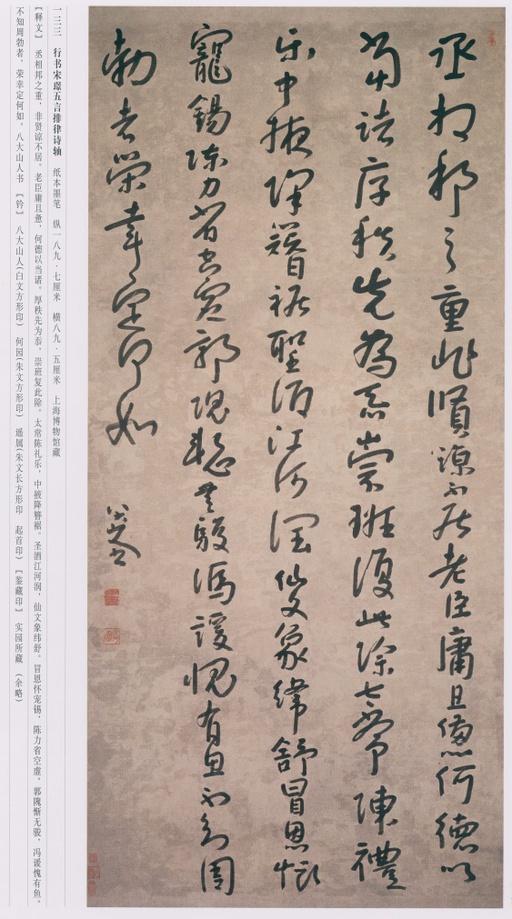 丞相邦之重非賢諒不居老臣庸且憊何德以
當諾厚秩先為忝崇班復此除太常陳禮
乐中掖降簪裾聖酒江河潤仙文象緯舒冒恩怀
寵錫陈力省空虚郭隗慙无駿馮諼愧有鱼不知周
勃者荣幸定何如
八大山人
一三三 行书宋璟五言排律诗轴 纸本墨笔 纵一八九·七厘米 横八九·五厘米 上海博物馆藏
【释文】 丞相邦之重，非贤谅不居。老臣庸且惫，何德以当诺。厚秩先为忝，崇班复此除。太常陈礼乐，中掖降簪裾。圣酒江河润，仙文象纬舒。冒恩怀宠锡，陈力省空虚。郭隗惭无骏，冯谖愧有鱼。
不知周勃者，荣幸定何如。八大山人书 【钤】 八大山人(白文方形印) 何园(朱文方形印) 遥属(朱文长方形印 起首印) 【鉴藏印】 实园所藏 (余略)